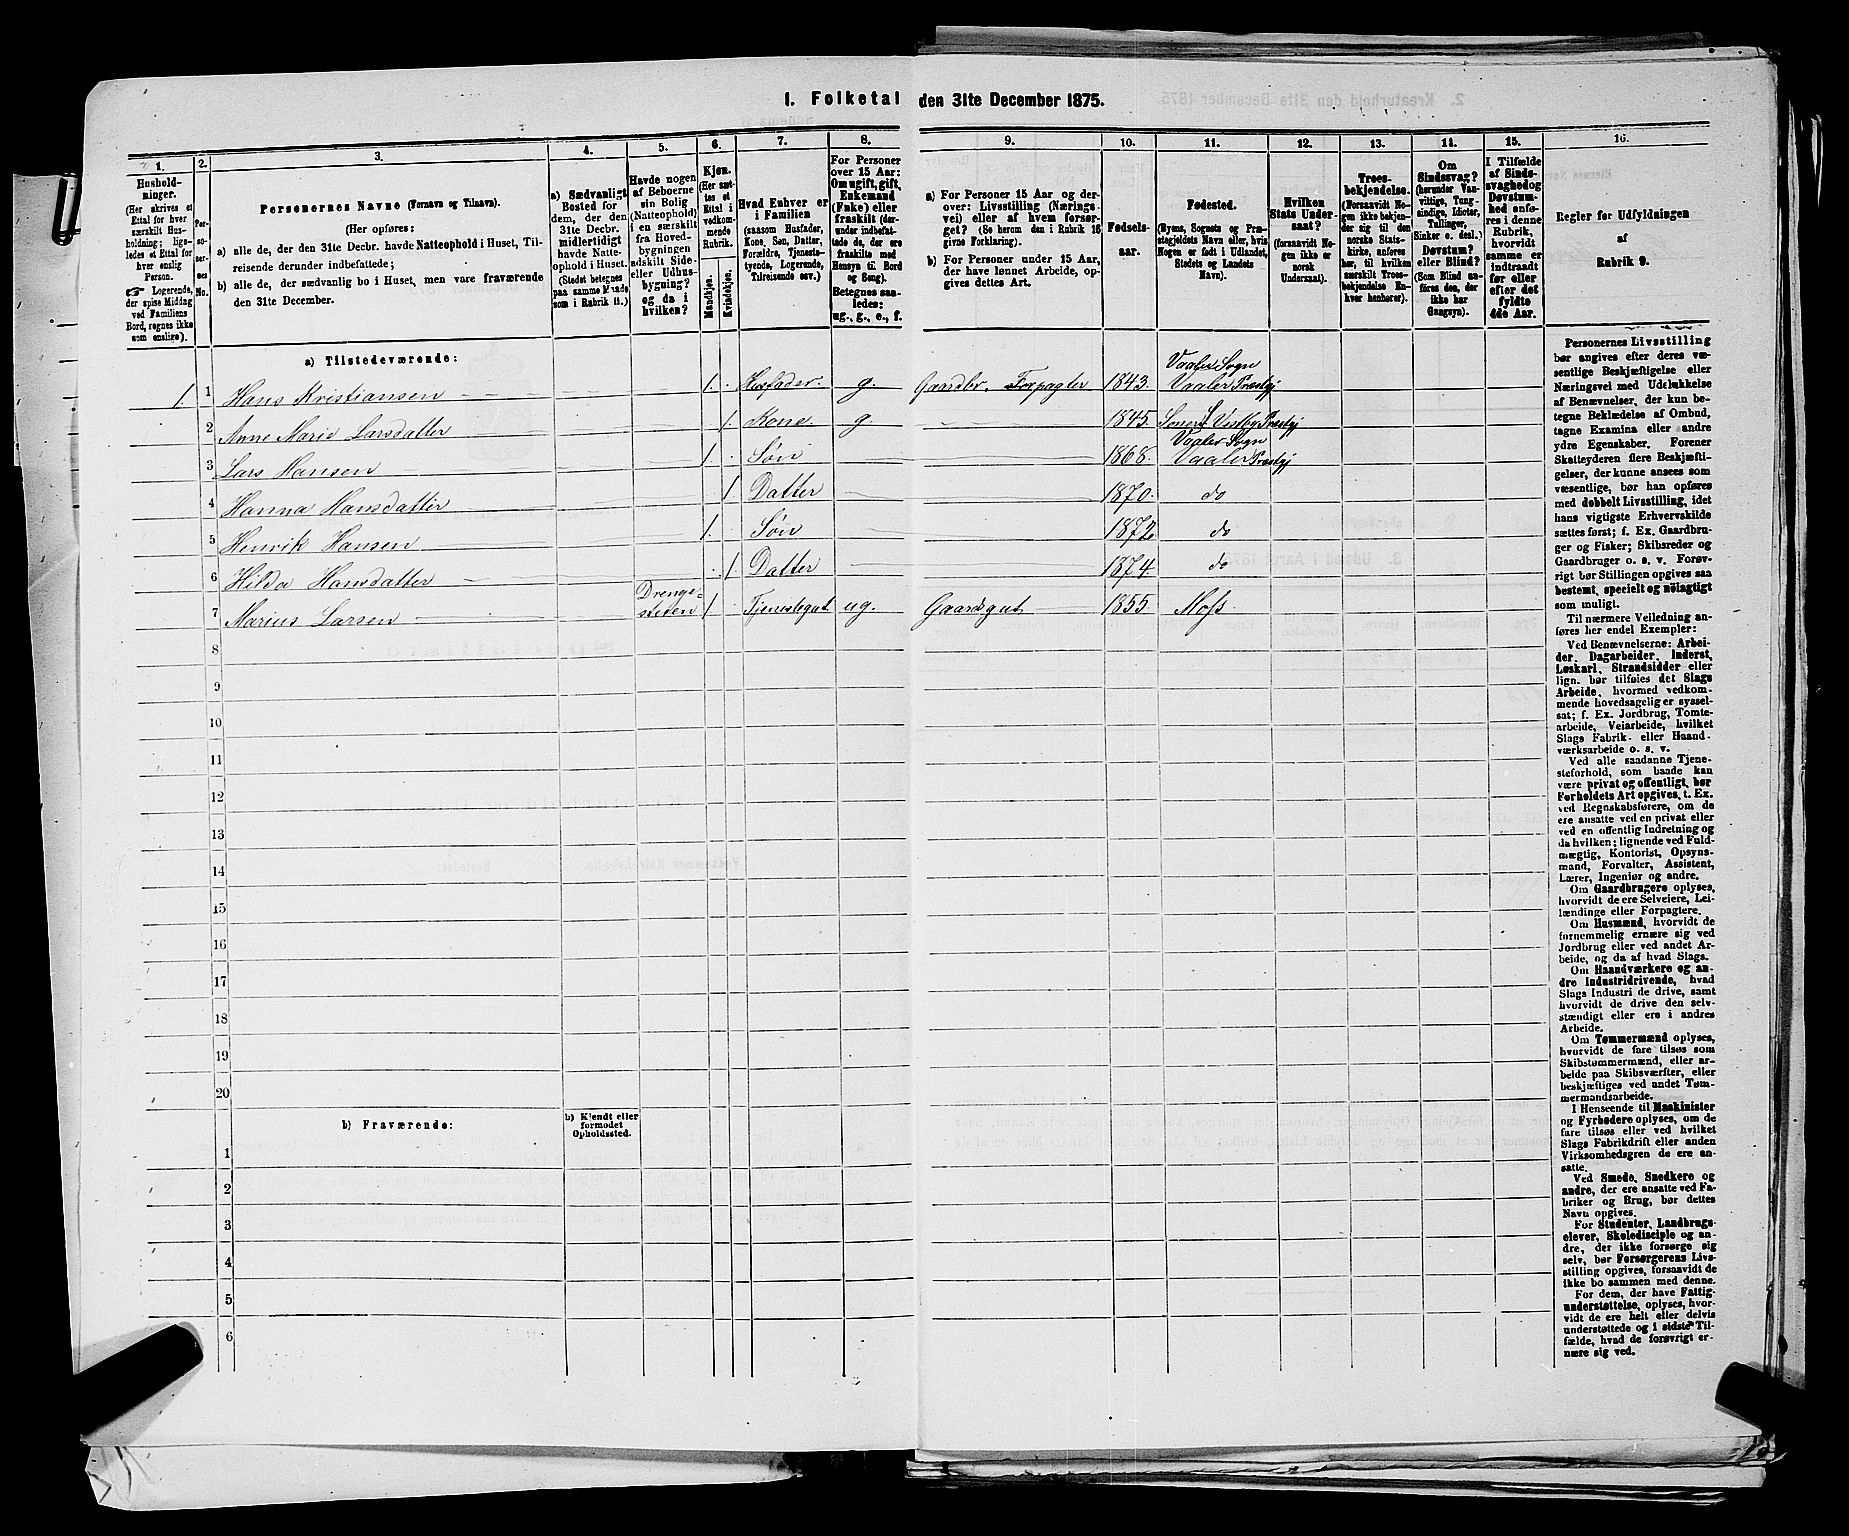 1. Folketal den 31te December 1875.
1. 2. 3. 4. 5. 6. 7. 8. 9. 10. 11. 12. 13. 14. 15. 16.
Hushold-
ninger.
(Her skrives et
Ettal for hver
særskilt Hus-
holdning; lige-
ledes et Ettal for
hver enslig
Person.
☞ Logerende,
der spise Middag
ved Familiens
Bord, regnes ikke
som enslige).
Per-
so-
ner-
nes
No.
Personernes Navne (Fornavn og Tilnavn).
(Her opføres:
a) alle de, der den 31te Decbr. havde Natteophold i Huset, Til-
reisende derunder indbefattede;
b) alle de, der sædvanlig bo i Huset, men vare fraværende
den 31te December.
a) Sædvanligt
Bosted for
dem, der den
31te Decbr.
midlertidigt
havde Natte-
ophold i Huset.
(Stedet betegnes
paa samme Maade
som i Rubrik 11.)
Havde nogen
af Beboerne
sin Bolig
(Natteophold)
i en særskilt
fra Hoved-
bygningen
adskilt Side-
eller Udhus-
bygning?
og da i
hvilken?
Kjøn.
(Her sæt-
tes et
Ettal i
vedkom-
mende
Rubrik.
Mandkjøn.
Kvindekjøn.
Hvad Enhver er
i Familien
(saasom Husfader,
Kone, Søn, Datter,
Forældre, Tjeneste-
tyende, Logerende,
Tilreisende osv.)
For Personer
over 15 Aar:
Om ugift, gift,
Enkemand
(Enke) eller
fraskilt (der-
under indbefat-
tede de, der ere
fraskilte med
Hensyn til Bord
og Seng).
Betegnes saa-
ledes:
ug., g., e., f.
a) For Personer 15 Aar og der-
over: Livsstilling (Nærings-
vei) eller af hvem forsør-
get? (Se herom den i Rubrik 16
givne Forklaring).
b) For Personer under 15 Aar,
der have lønnet Arbeide, op-
gives dettes Art.
Fødsels-
aar.
Fødested.
(Byens, Sognets og Præ-
stegjeldets Navn eller, hvis
Nogen er født i Udlandet,
Stedets og Landets
Navn).
Hvilken
Stats Under-
saat?
(forsaavidt No-
gen ikke er
norsk
Undersaat).
Troes-
bekjendelse.
(Forsaavidt No-
gen ikke bekjen-
der sig til den
norske Stats-
kirke, anføres
her, til hvilken
særskilt Troes-
bekjendelse En-
hver henhører).
Om
Sindssvag?
(herunder Van-
vittige, Tung-
sindige, Idioter,
Tullinger,
Sinker o. desl.)
Døvstum?
eller Blind?
(Som Blind an-
føres den, der
ikke har
Gangsyn).
I Tilfælde
af Sinds-
svaghed og
Døvstum-
hed anfø-
res i denne
Rubrik,
hvorvidt
samme er
indtraadt
før eller
efter det
fyldte
4de Aar.
Regler for Udfyldningen
af
Rubrik 9.
a) Tilstedeværende:
1 1 Hans Kristiansen 1. Husfader. g. Gaardbr. Forpagter 1843. Vaaler Sogn
Vaaler Præstgj
2 Anne Marie Larsdatter 1. Kone g. 1845. Soner S Vestby Præstgj
3 Lars Hansen 1 Søn 1868. Vaaler Sogn
Vaaler Præstgj
4 Hanna Hansdatter 1 Datter 1870. do
5 Henrik Hansen 1. Søn 1872. do
6 Hilda Hansdatter 1 Datter 1874. do
7 Marius Larsen Drenge-
stuen 1 Tjenestegut ug. Gaardsgut 1855. Moss.
8
9
10
11
12
13
14
15
16
17
18
19
20
b) Fraværende: b) Kjendt eller
formodet
Opholdssted.
1
2
3
4
5
6
Personernes Livsstilling
bør angives efter deres væ-
sentlige Beskjæftigelse eller
Næringsvei med Udelukkelse
af Benævnelser, der kun be-
tegne Beklædelse af Ombud,
tagne Examina eller andre
ydre Egenskaber. Forener
Skatteyderen flere Beskjæfti-
gelser, der kunne ansees som
væsentlige, bør han opføres
med dobbelt Livsstilling, idet
hans vigtigste Erhvervskilde
sættes først; f. Ex. Gaardbru-
ger og Fisker; Skibsreder og
Gaardbruger o. s. v. Forøv-
rigt bør Stillingen opgives saa
bestemt, specielt og nøiagtigt
som muligt.
Til nærmere Veiledning an-
føres her endel Exempler:
Ved Benævnelserne: Arbei-
der, Dagarbeider, Inderst,
Løskarl, Strandsidder eller
lign. bør tilføies det Slags
Arbeide, hvormed vedkom-
mende hovedsagelig er syssel-
sat; f. Ex. Jordbrug, Tomte-
arbeide, Veiarbeide, hvilket
Slags Fabrik- eller Haand-
værksarbeide o. s. v.
Ved alle saadanne Tjene-
steforhold, som baade kan
være privat og offentligt, bør
Forholdets Art opgives, t. Ex.
ved Regnskabsførere, om de
ere ansatte ved en privat eller
ved en offentlig Indretning og
da hvilken; lignende ved Fuld-
mægtig, Kontorist, Opsyns-
mand, Forvalter, Assistent,
Lærer, Ingeniør og andre.
Om Gaardbrugere oplyses,
hvorvidt de ere Selveiere, Lei-
lændinge eller Forpagtere.
Om Husmænd, hvorvidt de
fornemmelig ernære sig ved
Jordbrug eller ved andet Ar-
beide, og da af hvad Slags.
Om Haandværkere og an-
dre Industridrivende, hvad
Slags Industri de drive, samt
hvorvidt de drive den selv-
stændigt eller ere i andres
Arbeide.
Om Tømmermænd oplyses,
hvorvidt de fare tilsøs som
Skibstømmermænd, eller ar-
beide paa Skibsværfter, eller
beskjæftiges ved andet Tøm-
mermandsarbeide.
I Henseende til Maskinister
og Fyrbødere oplyses, om de
fare tilsøs eller ved hvilket
Slags Fabrikdrift eller anden
Virksomhedsgren de ere an-
satte.
Ved Smede, Snedkere og
andre, der ere ansatte ved Fa-
briker og Brug, bør dettes
Navn opgives.
For Studenter, Landbrugs-
elever, Skoledisciple og an-
dre, der ikke forsørge sig
selv, bør Forsørgerens Livs-
stilling opgives, forsaavidt de
ikke bo sammen med denne.
For dem, der have Fattig-
understøttelse, oplyses, hvor-
vidt de ere helt eller delvis
understøttede og i sidste Til-
fælde, hvad de forøvrigt er-
nære sig ved.